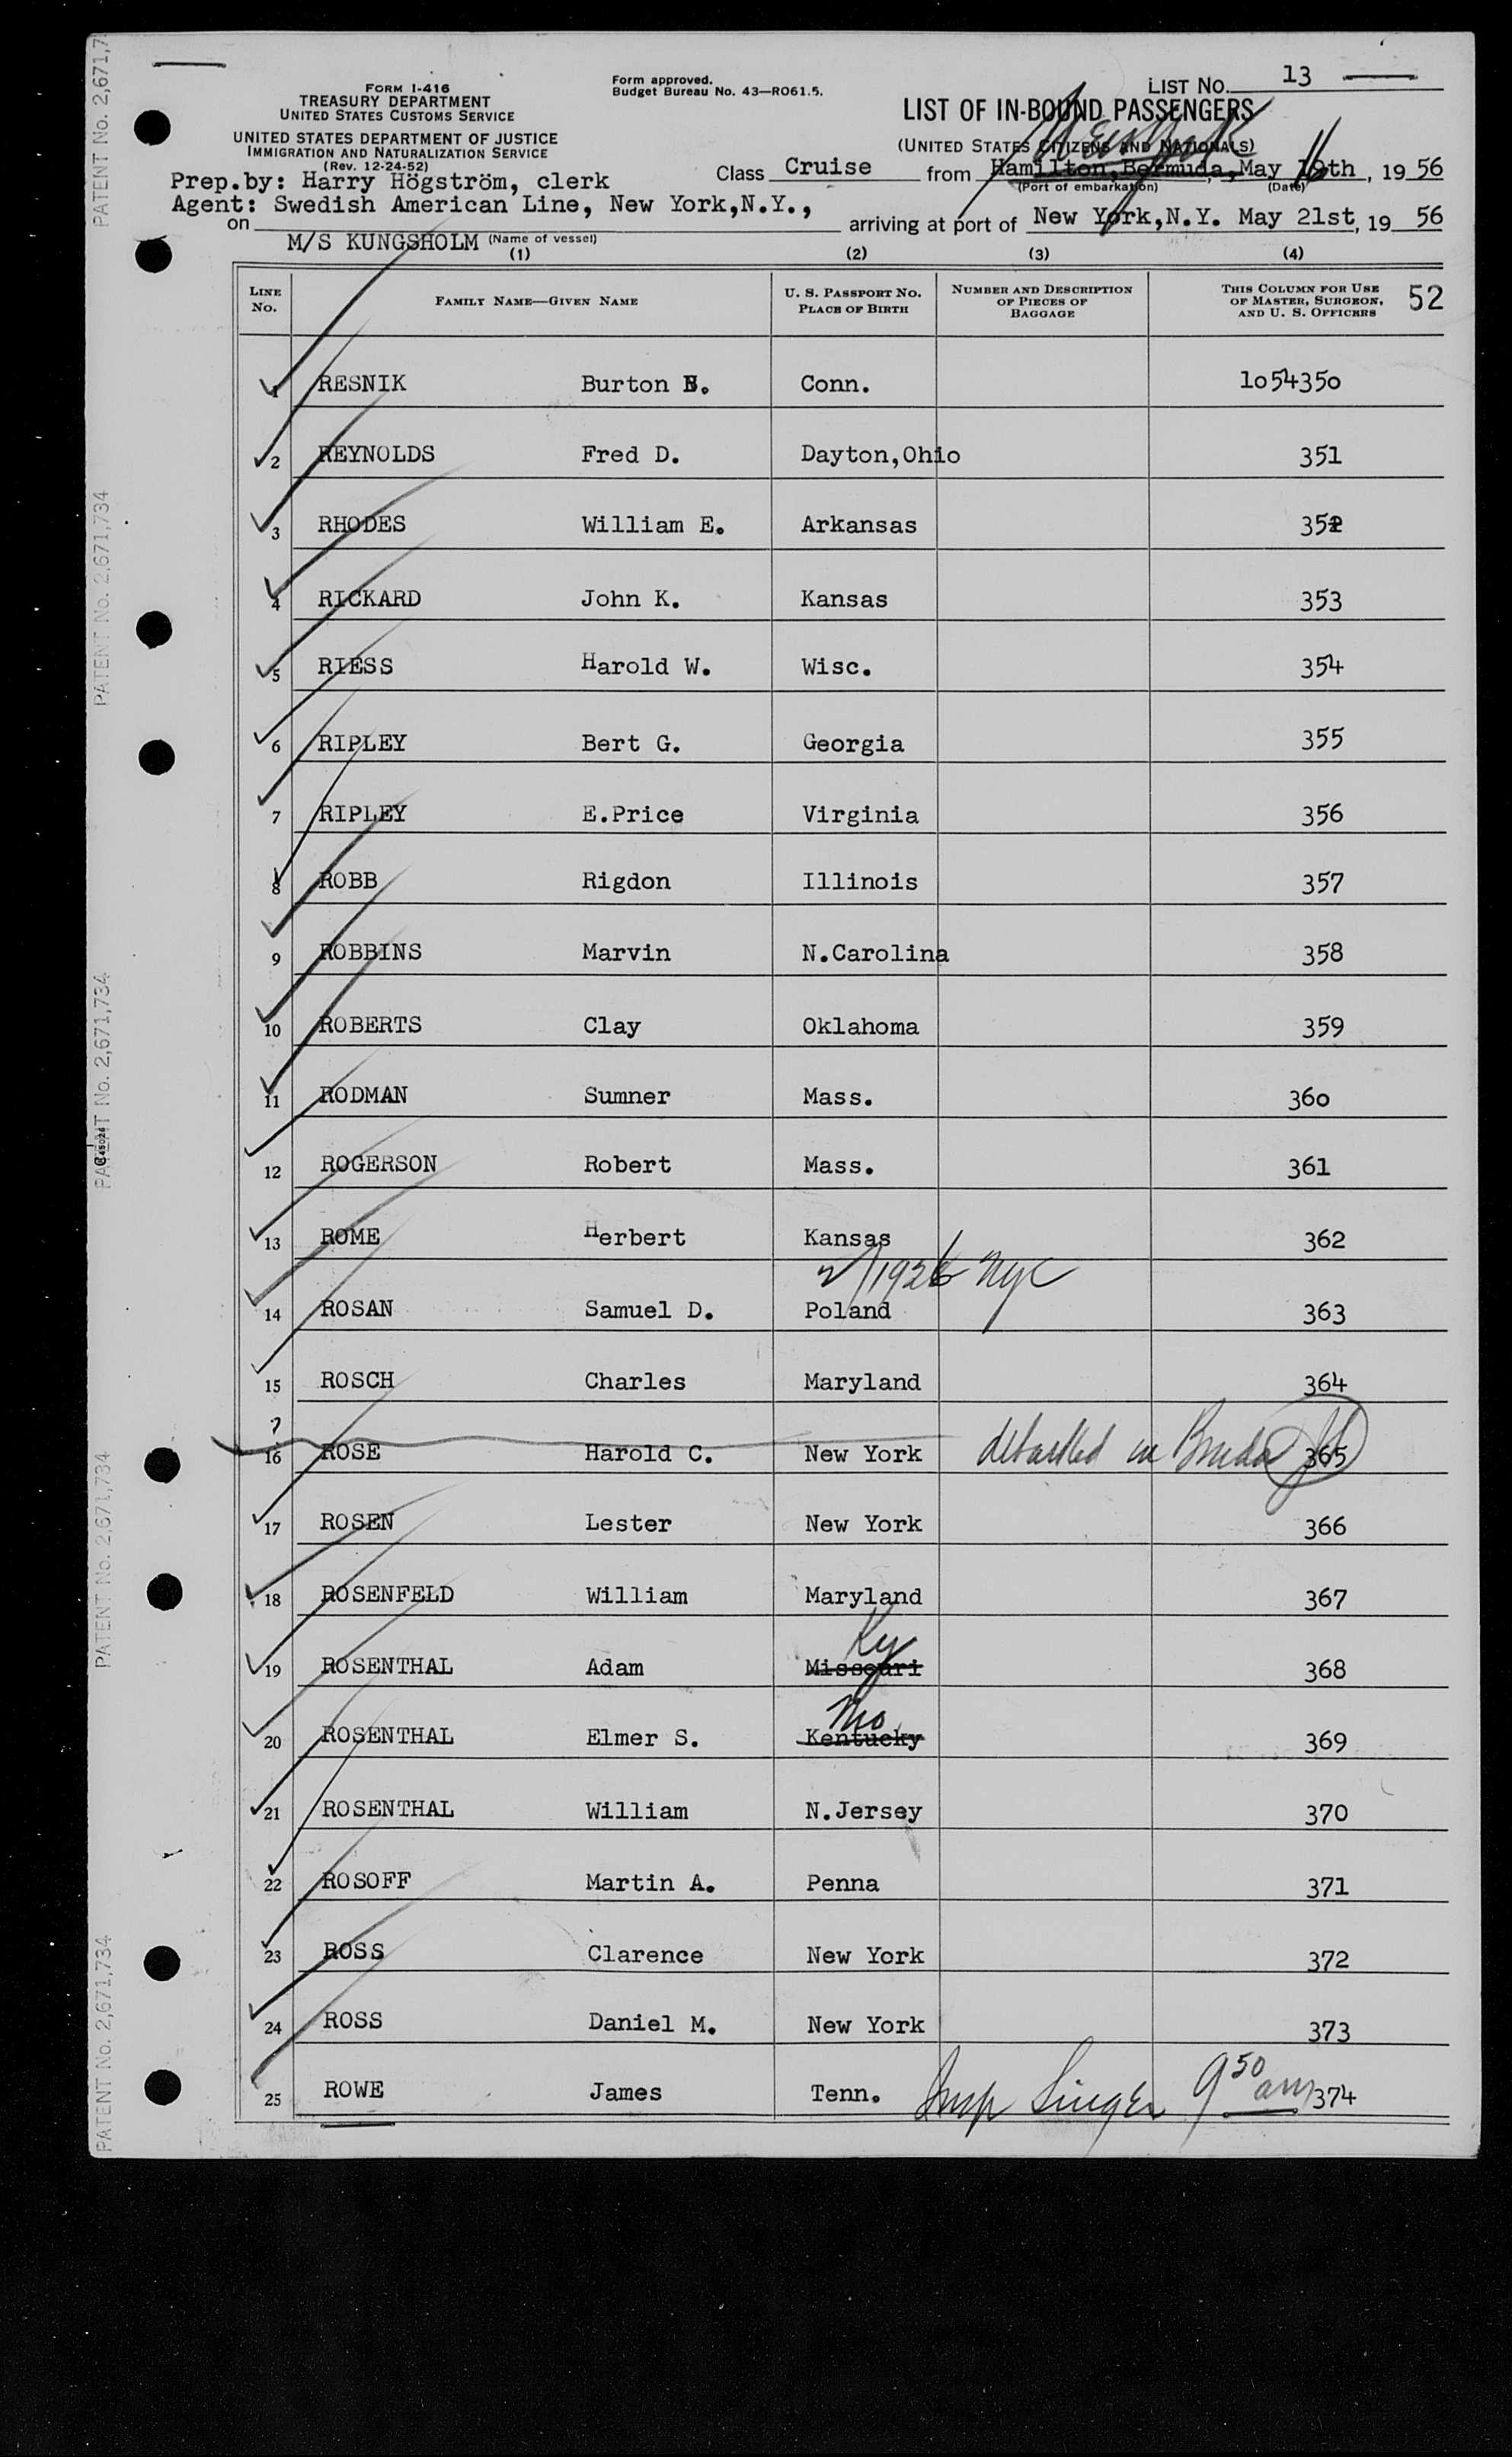 LIST NO. 13
FORM I-416
TREASURY DEPARTMENT
UNITED STATES CUSTOMS SERVICE
UNITED STATES DEPARTMENT OF JUSTICE
IMMIGRATION AND NATURALIZATION SERVICE
(Rev. 12-24-52)
Form approved.
Budget Bureau No. 43—RO61.5.
LIST OF IN-BOUND PASSENGERS
(UNITED STATES CITIZENS AND NATIONALS)
New York
Prep.by: Harry Högström, clerk
Class Cruise from Hamilton, Bermuda, May 16th, 19 56
(Port of embarkation) (Date)
Agent: Swedish American Line, New York,N.Y.,
on M/S KUNGSHOLM (Name of vessel) arriving at port of New York,N.Y. May 21st, 19 56
(1) (2) (3) (4)
LINE NO. FAMILY NAME—GIVEN NAME U. S. PASSPORT NO. PLACE OF BIRTH NUMBER AND DESCRIPTION OF PIECES OF BAGGAGE THIS COLUMN FOR USE OF MASTER, SURGEON, AND U. S. OFFICERS 52
1 RESNIK Burton N. Conn. 1054350
2 REYNOLDS Fred D. Dayton,Ohio 351
3 RHODES William E. Arkansas 352
4 RICKARD John K. Kansas 353
5 RIESS Harold W. Wisc. 354
6 RIPLEY Bert G. Georgia 355
7 RIPLEY E.Price Virginia 356
8 ROBB Rigdon Illinois 357
9 ROBBINS Marvin N.Carolina 358
10 ROBERTS Clay Oklahoma 359
11 RODMAN Sumner Mass. 360
12 ROGERSON Robert Mass. 361
13 ROME Herbert Kansas 362
1926 NYC
14 ROSAN Samuel D. Poland 363
15 ROSCH Charles Maryland 364
?
16 ROSE Harold C. New York debarked in Bmuda 365
17 ROSEN Lester New York 366
18 ROSENFELD William Maryland 367
Ky
19 ROSENTHAL Adam Missouri 368
Mo
20 ROSENTHAL Elmer S. Kentucky 369
21 ROSENTHAL William N.Jersey 370
22 ROSOFF Martin A. Penna 371
23 ROSS Clarence New York 372
24 ROSS Daniel M. New York 373
25 ROWE James Tenn. Insp Singer 9 50 am 374
PATENT No. 2,671,734
PATENT No. 2,671,734
PATENT No. 2,671,734
PATENT No. 2,671,734